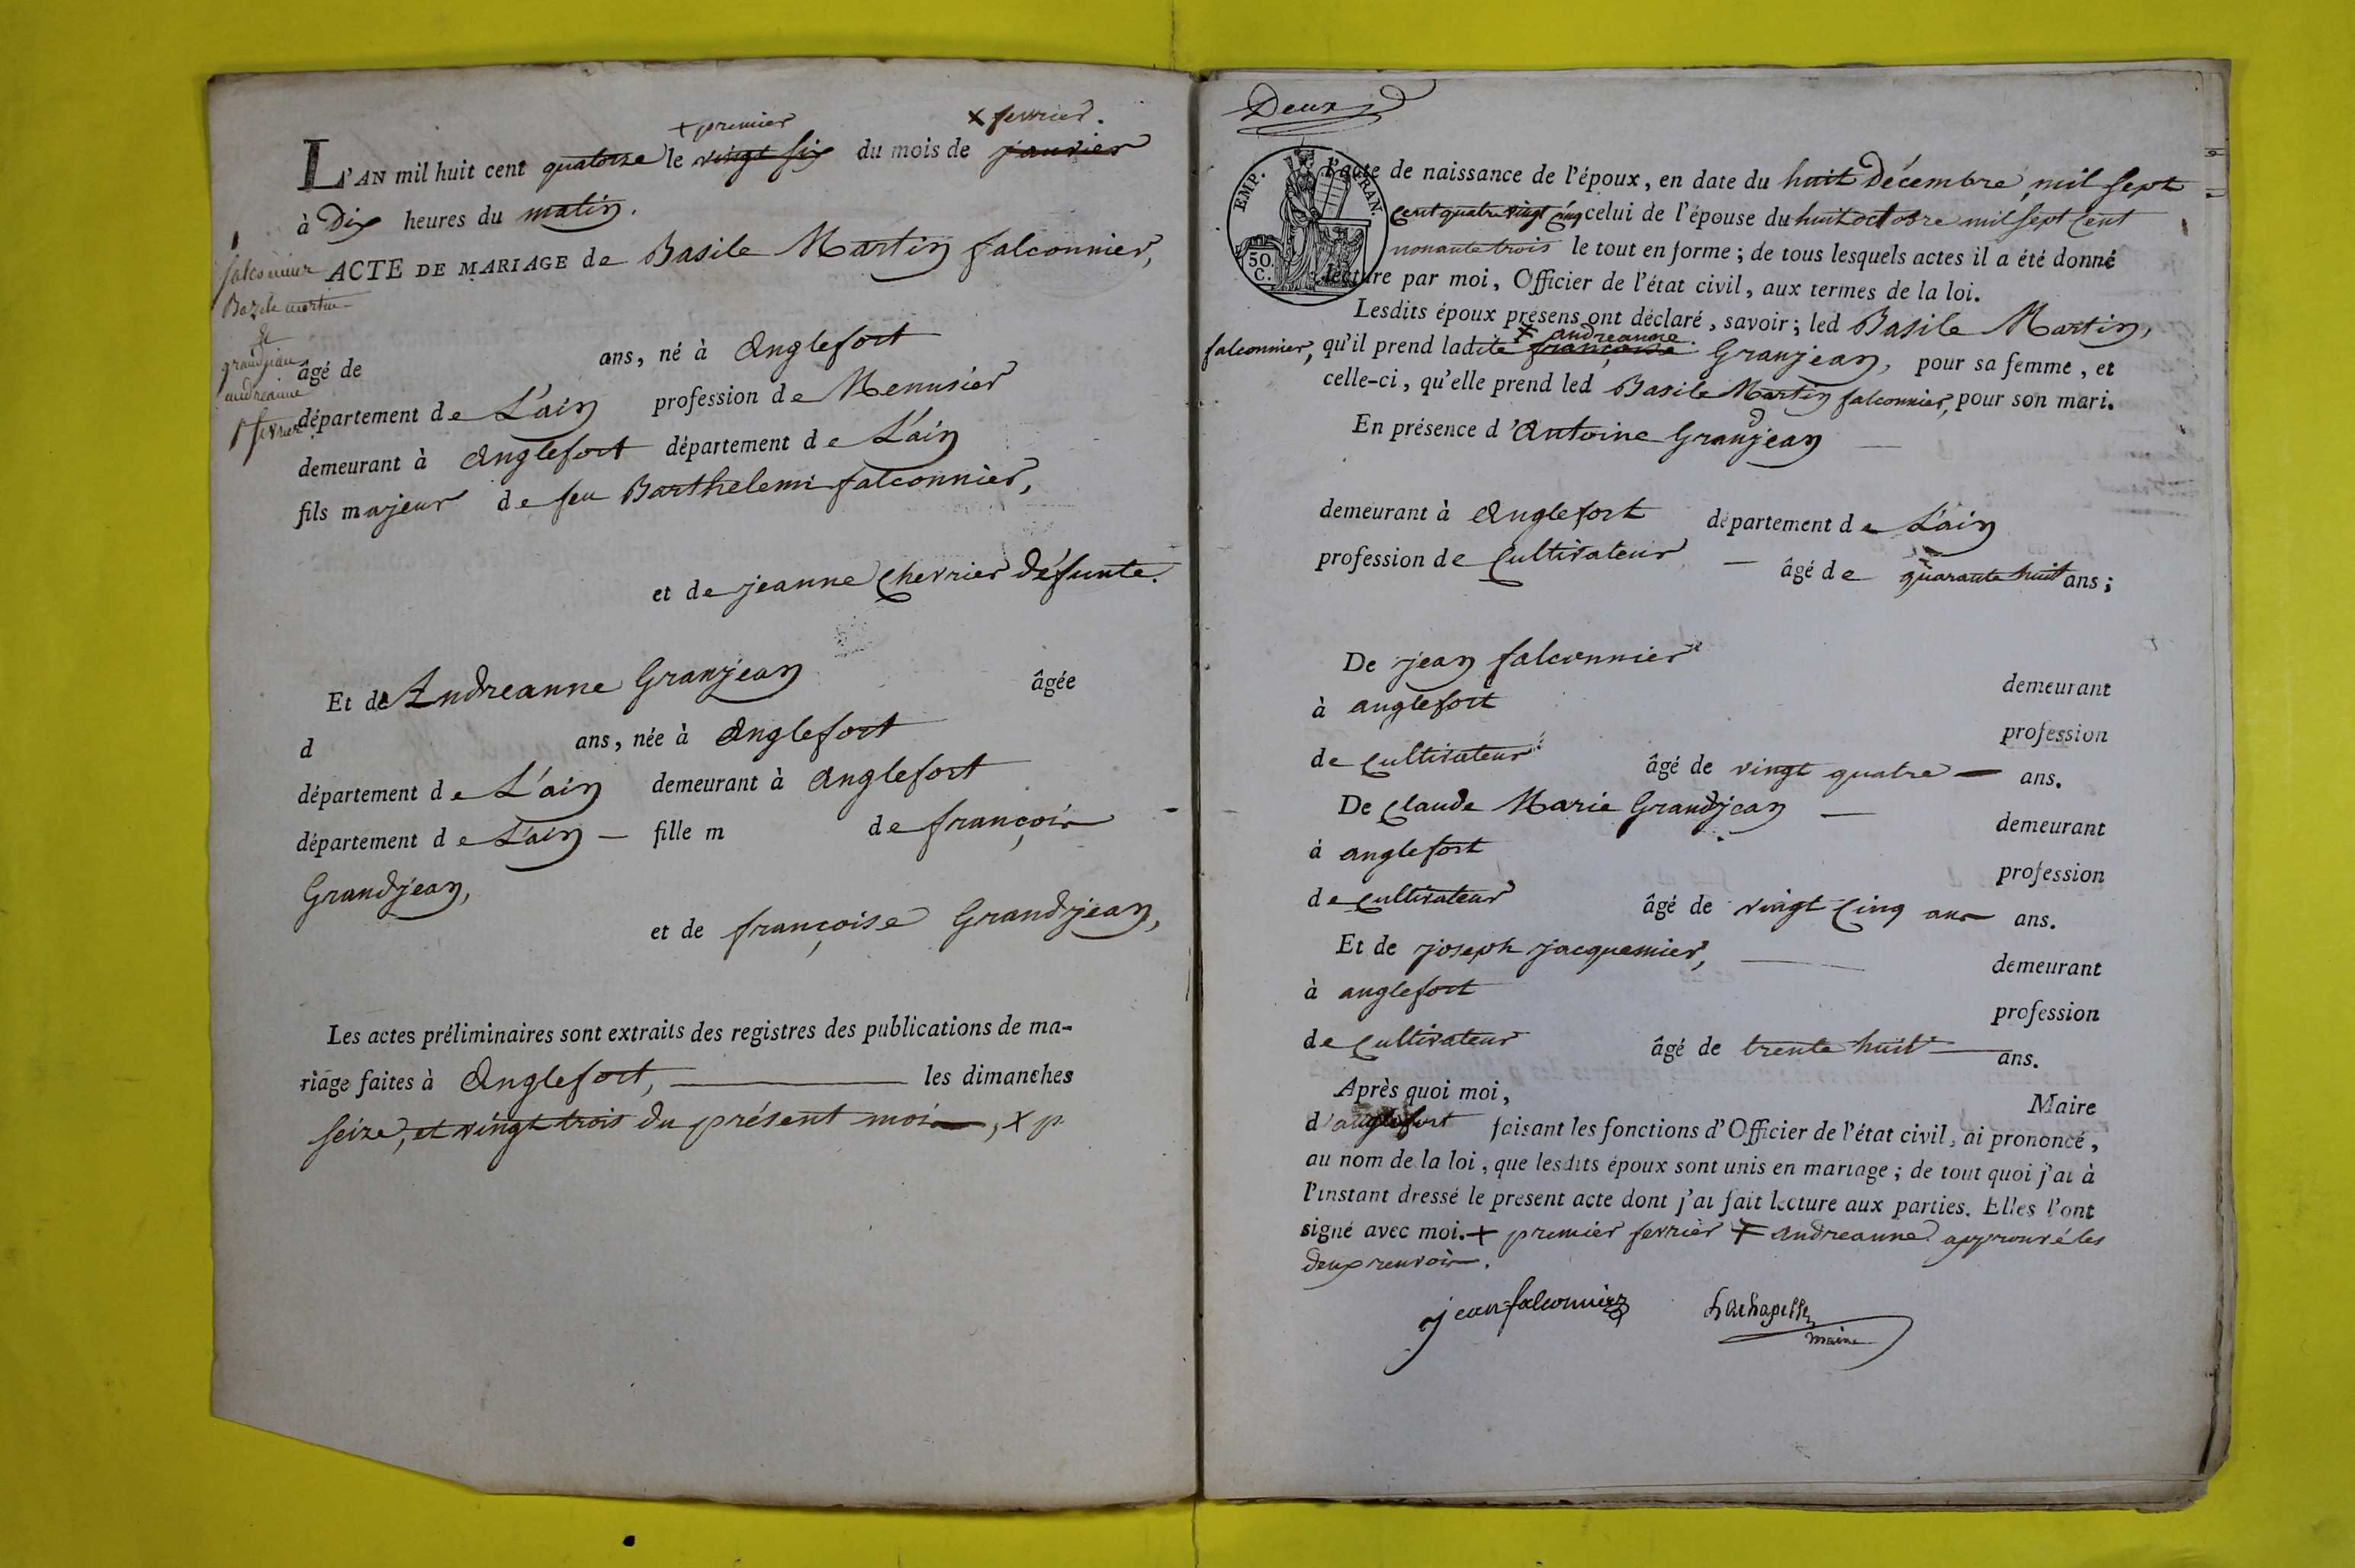 + premier × fevrier.
L'AN mil huit cent quatorze le vingt six du mois de janvier
à Dix heures du matin.
ACTE DE MARIAGE de Basile Martin falconnier,
falconnier
Bazile martin
&
grandjean
andréanne
1er fevrier.
âgé de ans, né à Anglefort
département de L'ain profession de Menusier
demeurant à Anglefort département de L'ain
fils majeur de feu Barthelemi falconnier,
et de jeanne Chevrier défunte.
Et de Andreanne Granjean âgée
d ans, née à Anglefort
département de L'ain demeurant à Anglefort
département de L'ain — fille m de françois
Grandjean,
et de françoise Grandjean,
Les actes préliminaires sont extraits des registres des publications de ma-
riage faites à Anglefort, les dimanches
seize, et vingt trois du présent mois, × p
Deux
EMP. GRAN.
50. C.
l'acte de naissance de l'époux, en date du huit Décembre mil sept
cent quatre vingt cinq celui de l'épouse du huit octobre mil sept cent
nonante trois le tout en forme ; de tous lesquels actes il a été donné
lecture par moi, Officier de l'état civil, aux termes de la loi.
Lesdits époux présens ont déclaré, savoir ; led Basile Martin,
× andreanne.
falconnier, qu'il prend ladite françoise Granjean, pour sa femme, et
celle-ci, qu'elle prend led Basile Martin falconnier, pour son mari.
En présence d'Antoine Grandjean
demeurant à Anglefort département de L'ain
profession de Cultivateur — âgé de quarante huit ans ;
De jean falconnier
demeurant
à anglefort
profession
de cultivateur âgé de vingt quatre — ans.
De Claude Marie Grandjean —
demeurant
à anglefort
profession
de cultivateur âgé de vingt cinq ans ans.
Et de joseph jacquemier,
demeurant
à anglefort
profession
de cultivateur âgé de trente huit — ans.
Après quoi moi, Maire
d'anglefort faisant les fonctions d'Officier de l'état civil, ai prononcé,
au nom de la loi, que lesdits époux sont unis en mariage ; de tout quoi j'ai à
l'instant dressé le present acte dont j'ai fait lecture aux parties. Elles l'ont
signé avec moi. + premier fevrier × andreanne approuvé les
deux renvois.
jean falconnier Lachapelle
maire